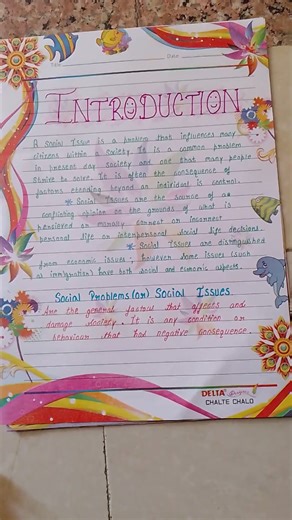 Title
Date
INTRODUCTION
A Social Issue is a problem that influences many
citizens within a society. It is a common problem
in present day society and one that many people
strive to solve. It is often the consequence of
factors extending beyond an individual is control.
Social Issues are the source of a
conflicting opinion on the grounds of what is
perceived as morally correct or incorrect
personal life or interpersonal social life decisions.
Social Issues are distinguished
from economic issues; however some issues (such
as immigration) have both social and economic aspects.
Social Problems (or) Social Issues
Are the general factors that affects and
damage society. It is any condition or
behaviour that has negative consequence.
DELTA
CHALTE CHALO